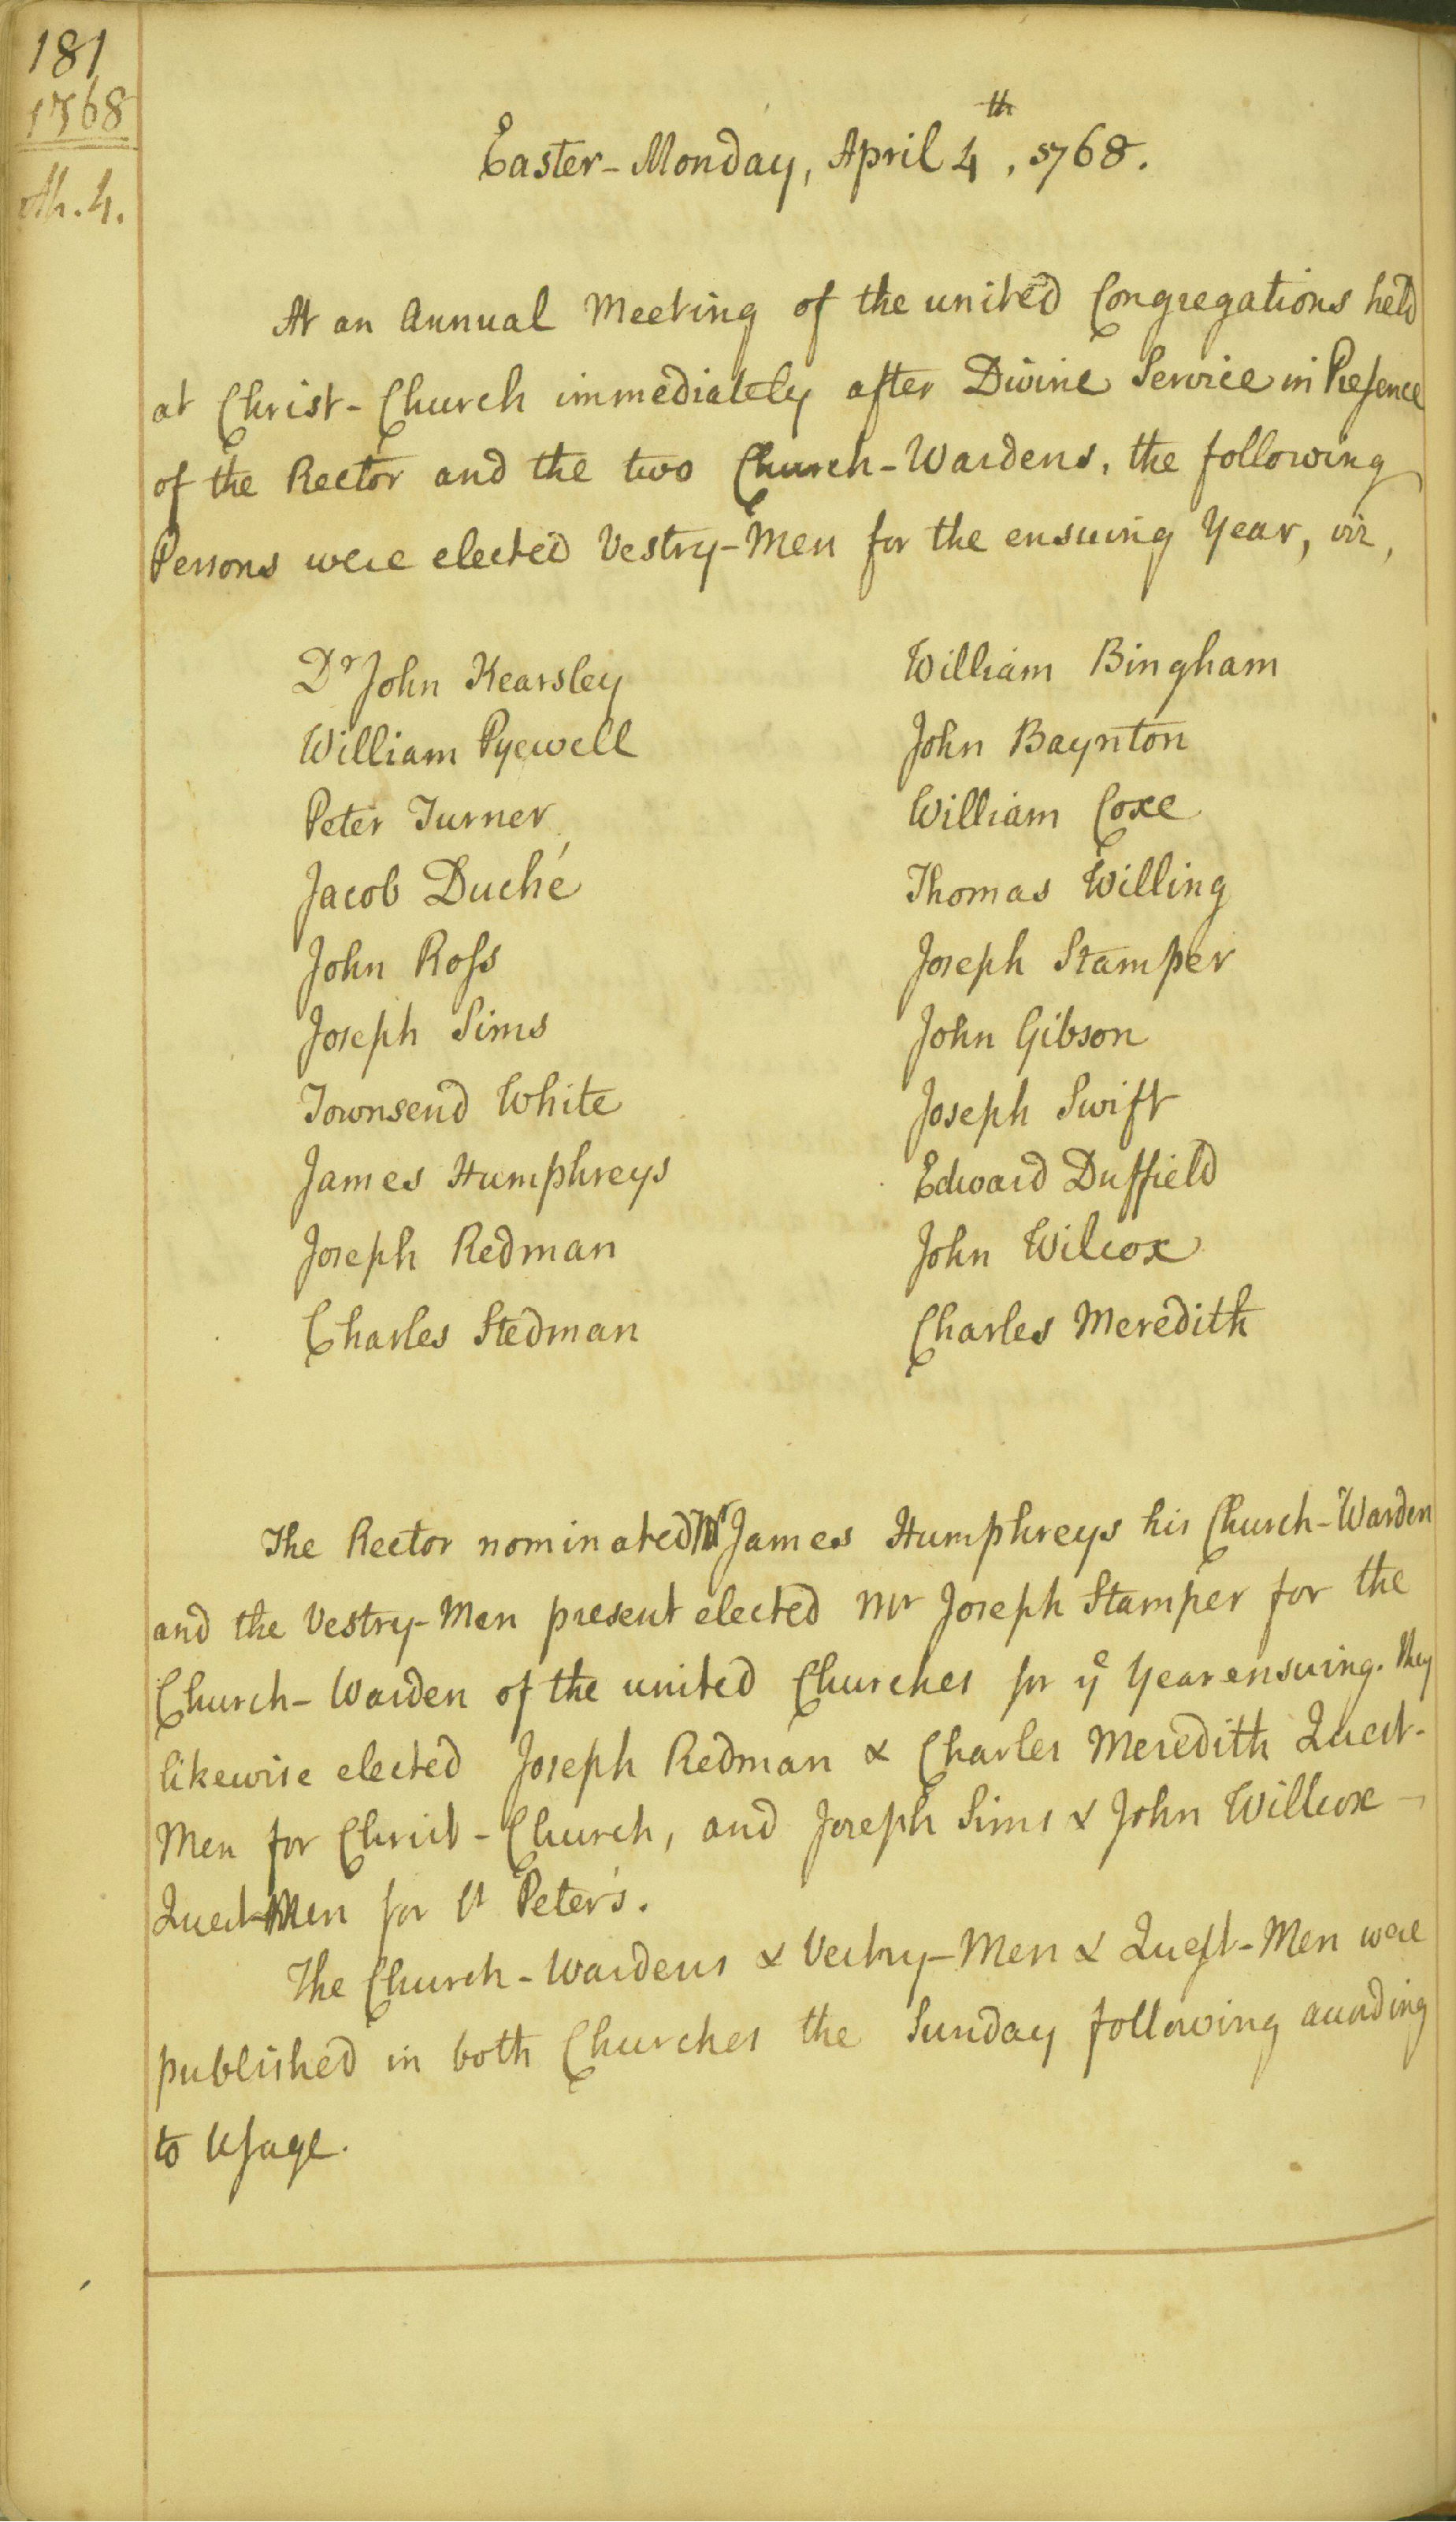 181
1768
Ap. 4.
Easter-Monday, April 4th, 1768.
At an Annual Meeting of the united Congregations held
at Christ-Church immediately after Divine Service in Presence
of the Rector and the two Church-Wardens, the following
Persons were elected Vestry-Men for the ensuing Year, viz,
Dr John Kearsley
William Pyewell
Peter Turner
Jacob Duché
John Ross
Joseph Sims
Townsend White
James Humphreys
Joseph Redman
Charles Stedman
William Bingham
John Baynton
William Coxe
Thomas Willing
Joseph Stamper
John Gibson
Joseph Swift
Edward Duffield
John Wilcox
Charles Meredith
The Rector nominated Mr James Humphreys his Church-Warden
and the Vestry-Men present elected Mr Joseph Stamper for the
Church-Warden of the united Churches for ye Year ensuing. They
likewise elected Joseph Redman & Charles Meredith Quest-
Men for Christ-Church, and Joseph Sims & John Willcox
Quest-Men for St Peter's.
The Church-Wardens & Vestry-Men & Quest-Men were
published in both Churches the Sunday following according
to Usage.